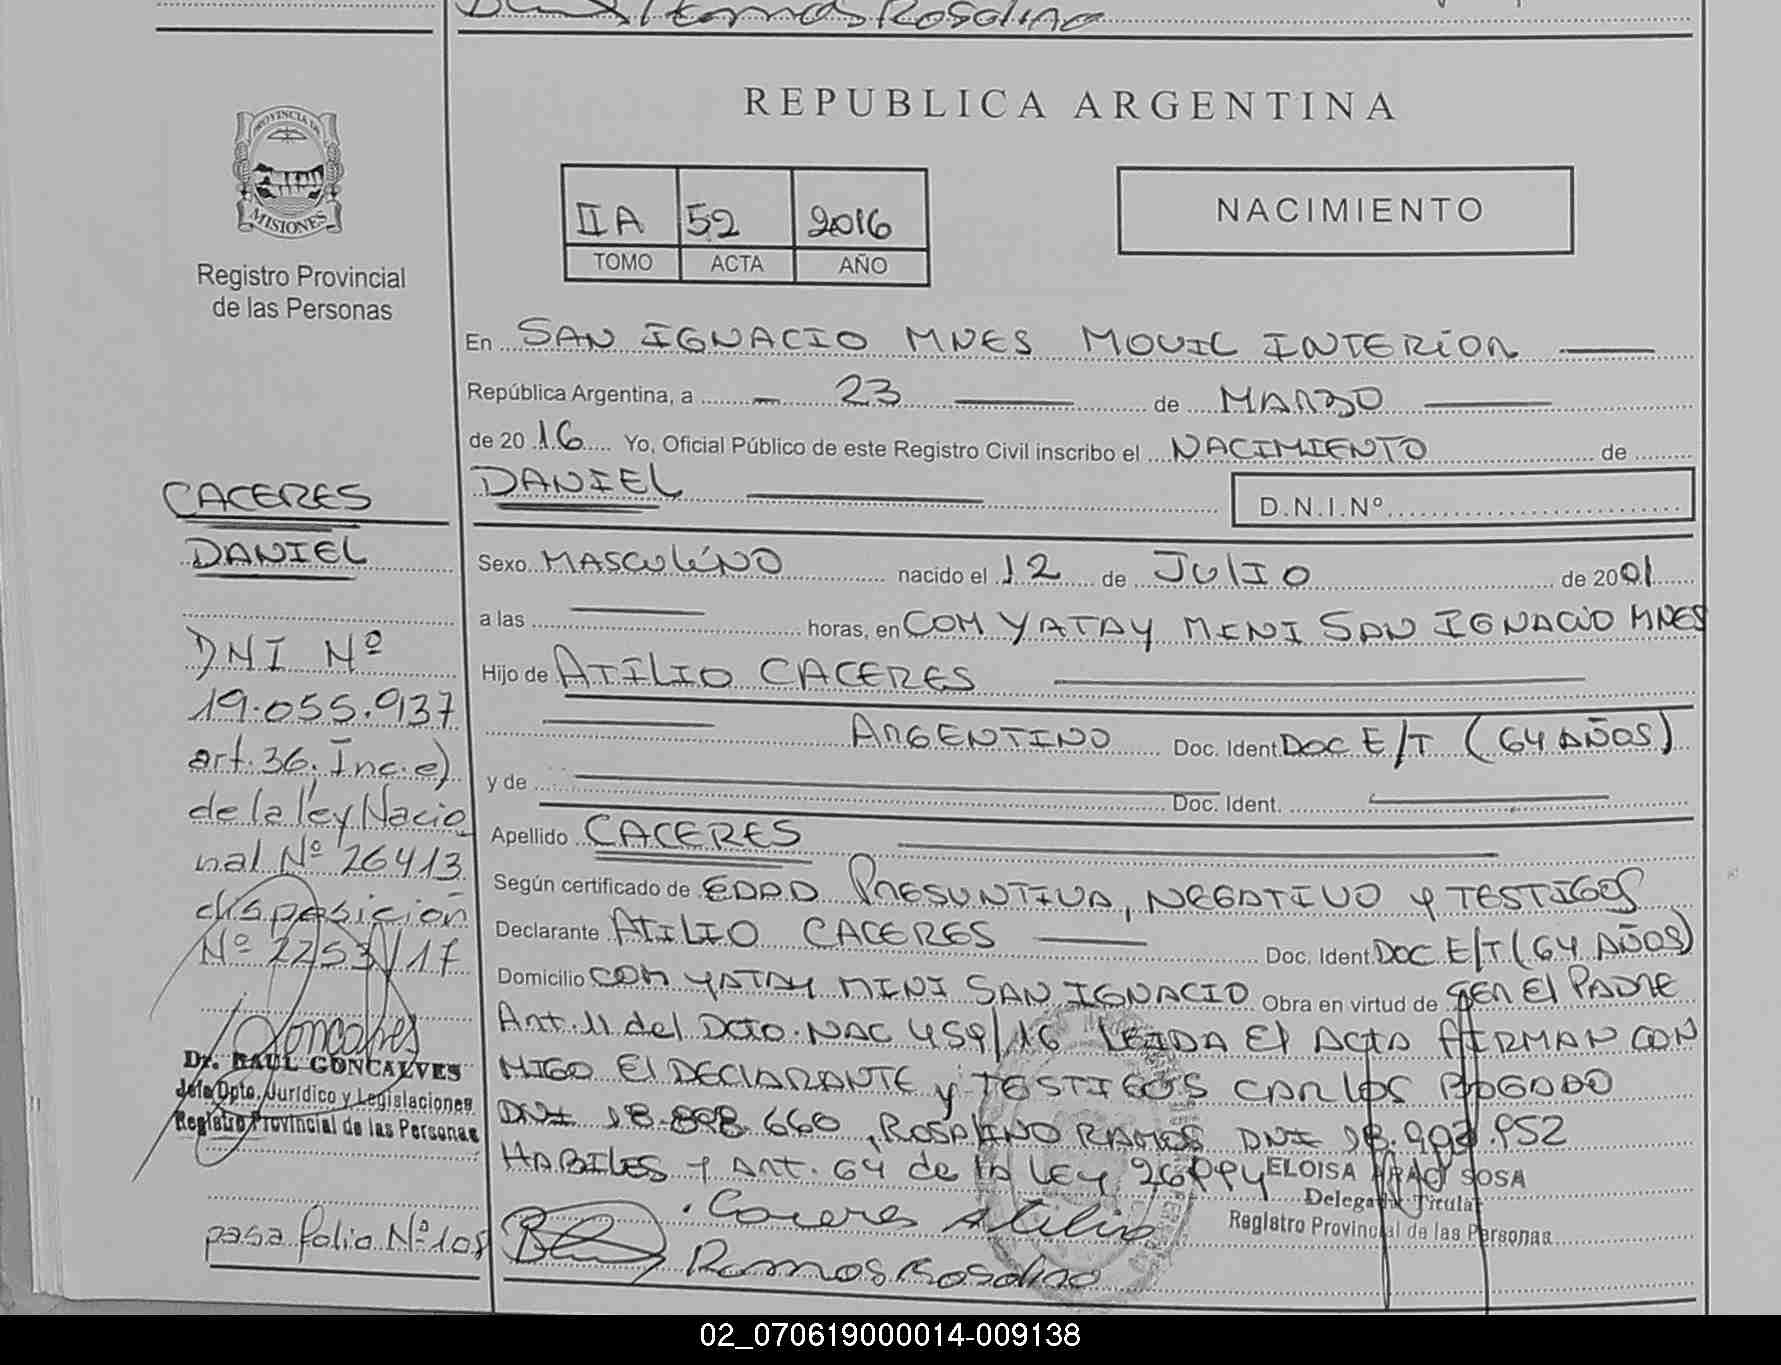 Rosalino
REPUBLICA ARGENTINA
PROVINCIA DE
MISIONES
Registro Provincial
de las Personas
IIA 52 2016
TOMO ACTA AÑO
NACIMIENTO
En SAN IGNACIO MNES MOVIL INTERIOR
República Argentina, a 23 de MARZO
de 2016 Yo, Oficial Público de este Registro Civil inscribo el NACIMIENTO de
DANIEL D.N.I.Nº
Sexo MASCULINO nacido el 12 de JULIO de 2001
a las horas, en COM YATAY MINI SAN IGNACIO MNES
Hijo de ATILIO CACERES
ARGENTINO Doc. Ident. DOC E/T (64 AÑOS)
y de Doc. Ident.
Apellido CACERES
Según certificado de EDAD PRESUNTIVA, NEGATIVO Y TESTIGOS
Declarante ATILIO CACERES Doc. Ident. DOC E/T (64 AÑOS)
Domicilio COM YATAY MINI SAN IGNACIO Obra en virtud de SER El PADRE
Art. 11 del Dcto. NAC 459/16 LEIDA El ACTA FIRMAN CON
MIGO El DECLARANTE y TESTIGOS CARLOS BOGADO
DNI 18.898.660, ROSALINO RAMOS DNI
HABILES Y ART. 64 de la LEY
Caceres Atilio
Ramos Rosalino
ELOISA SOSA
Delegada Titular
Registro Provincial de las Personas
CACERES
DANIEL
DNI Nº
19.055.937
art. 36. Inc. e)
de la ley Nacio
nal Nº 26413
disposición
Nº 2253/17
Goncalves
Dr. RAUL GONCALVES
Jefe Dpto. Jurídico y Legislaciones
Registro Provincial de las Personas
pasa folio Nº 108
02_070619000014-009138